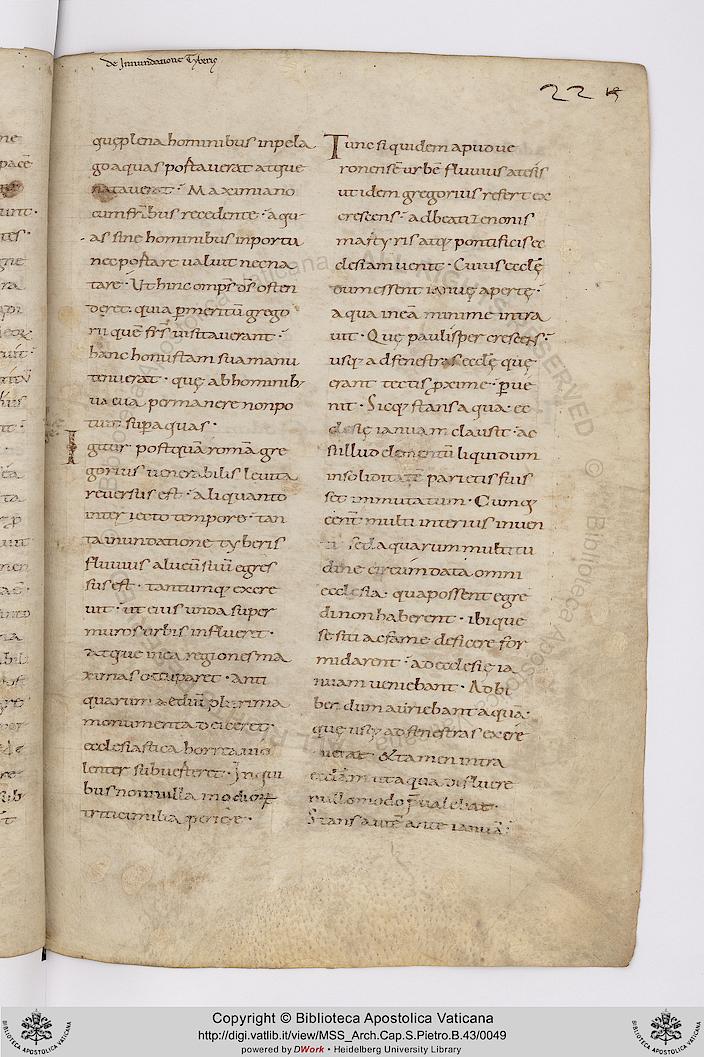 de Inundatione Tyberis
22
gusplena hominibus inpela
goaquas postauerat atque
natauerat · Maximiano
cumfr̄ibus recedente · aqu
as sine hominibus inportu
nec postare ualuit necna
tare · Ut hinc omp̄s d̄s osten
deret · quia p meritū grego
rii quē fr̄s uisitauerant ·
hanc honustam sua manu
tenuerat · quę ab hominib;
uacua permanere non po
tuit supaquas ·
Igitur postquā romā gre
gorius uenerabilis leuita
reuersus est · aliquanto
interiecto tempore · tan
ta inundatione tyberis
fluuius alueū suū egres
sus est · tantumq; excre
uit · ut eius unda super
muros urbis influeret ·
atque in ea regiones ma
ximas occuparet · anti
quarum aediū plurima
monumenta deiceret ·
ecclesiastica horrea uio
lenter subuerteret · In qui
bus nonnulla modiorꝝ
tritici milia periere ·
Tunc siquidem apud ue
ronensē urbē fluuius atesis
ut idem gregorius refert ex
crescens · ad beati zenonis
martyris atq; pontificis ec
clesiam uenit · Cuius ecclę
dum essent ianuę apertę ·
aqua in eā minime intra
uit · Quę paulisper crescens ·
usq; ad fenestras ecclę quę
erant tectis proxime · p̄ue
nit · Sicq; stans aqua · ec
clesię ianuam clausit · ac
si illud elementū liquidum
in soliditatē parietis fuis
set inmutatum · Cumq;
eent multi interius inuen
ti · sed aquarum multitu
dine circumdata omni
ecclesia · qua possent egre
di non haberent · ibique
se siti ac fame deficere for
midarent · ad ecclesię ia
nuam ueniebant · Ad bi
bendum auriebant aqua ·
quę usq; ad fenestras excre
uerat · & tamen intra
ecclām ut aqua diffluere
nullomodo p̄ualebat ·
Stans autē ante ianuā ·
Copyright © Biblioteca Apostolica Vaticana
http://digi.vatlib.it/view/MSS_Arch.Cap.S.Pietro.B.43/0049
powered by DWork • Heidelberg University Library